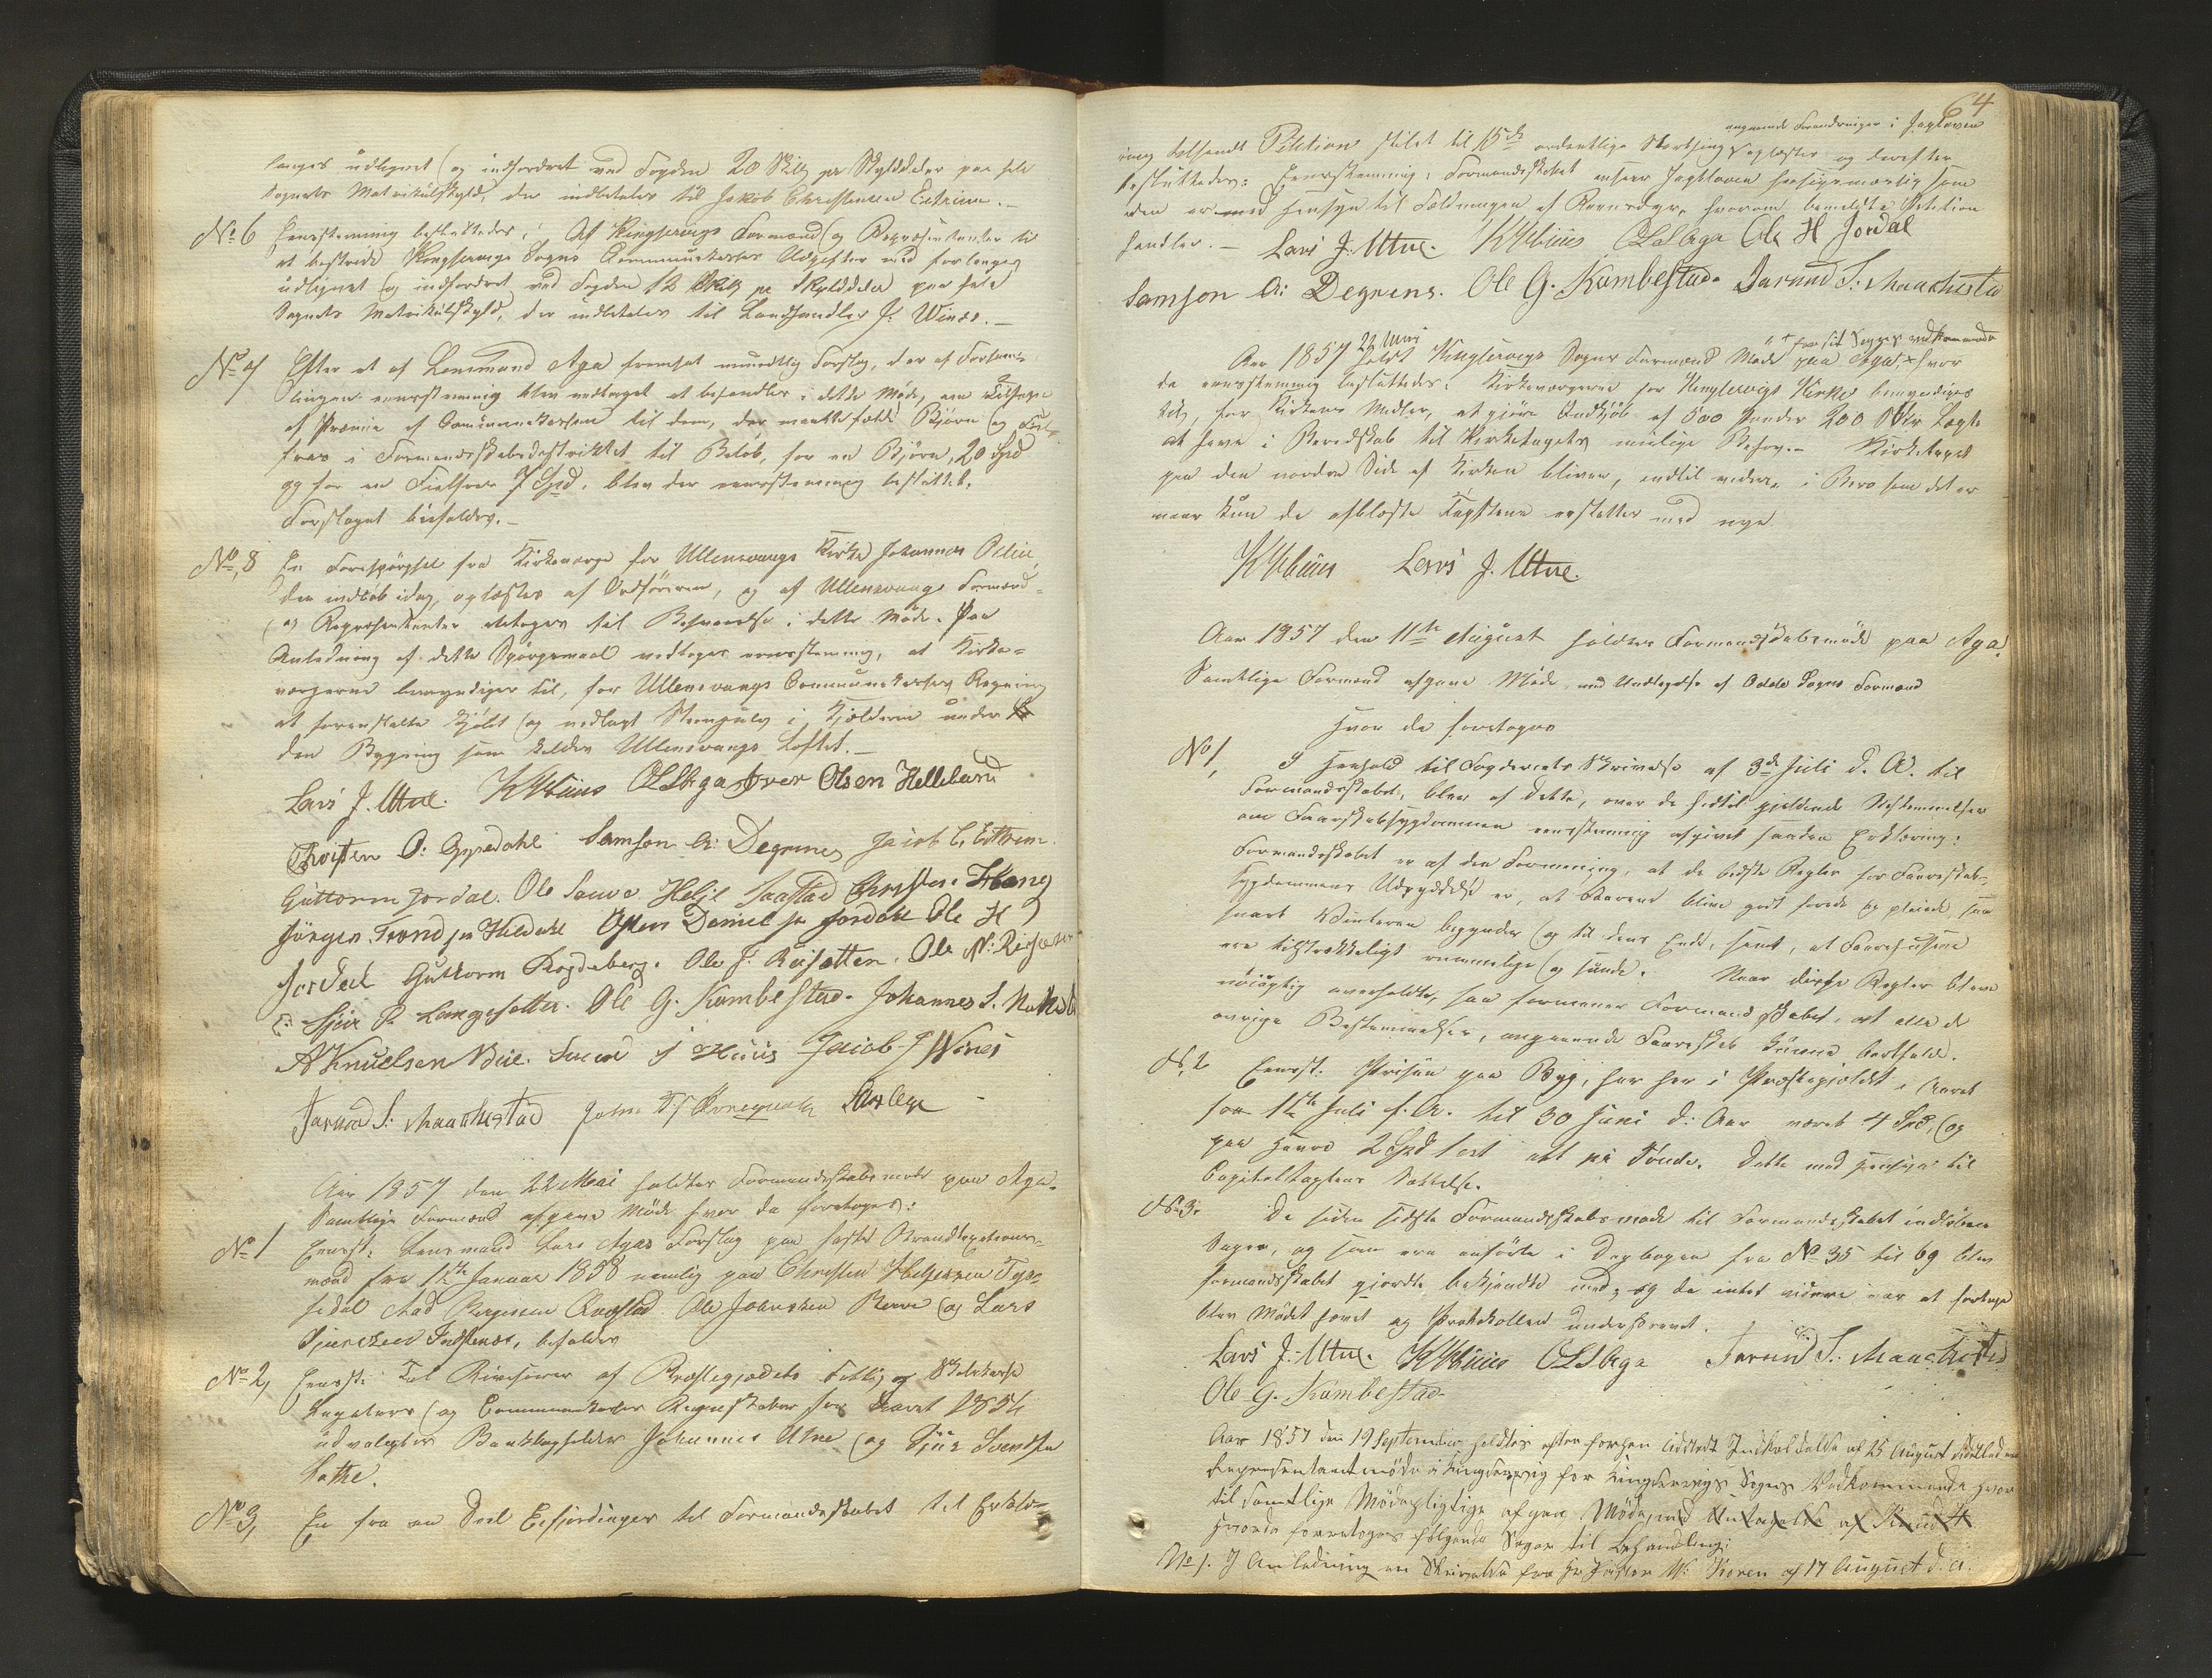 langes udlignet og indfordret ved Fogden 20 Skill pr Skylddaler paa hele
Sognets Matrikulskyld, der indbetales til Jakob Christensen Eitrim.-
No 6 Eensstemmig besluttedes: At Kingservigs Formænd og Repræsentanter til
at bestride Kingservigs Sogns Communekasses Udgifter med forlanges
udlignet og indfordret ved Fogden 12 Skill pr Skylddaler paa hele
Sognets Matrikulskyld, der indbetales til Landhandler J: Winæs.-
No 7 Efter at af Lensmand Aga fremsat mundtlig Forslag, der af Forsam-
lingen eensstemmig blev vedtaget at behandles i dette Møde, om Tilsagn
af Præmie af Communekassen til dem, der maatte fælde Bjørn og Fiel-
fras i Formandskabsdistriktet til Beløb, for en Bjørn, 20 Spd
og for en Fielfras 7 Spd. blev der eensstemmig besluttet:
Forslaget bifaldes.-
No 8 En Forespørgsel fra Kirkeværge for Ullensvangs Kirke Johannes
den indløb idag, oplæstes af Ordføreren, og af Ullensvangs Formænd
og Repræsentanter vedtoges til Besvarelse i dette Møde. Paa
Anledning af dette Spørgsmaal vedtoges eensstemmig, at Kirke-
værgerne bemyndiges til, for Ullensvangs Communekasses Regning
at foranstalte kjøbt og nedlagt Steengulv i Kjelderen under
den Bygning som kaldes Ullensvangs Loftet.-
Lars J. Utne. OLSAga Iver Olsen Helleland
Thoisten O: Samson A: Degrenes Jacob C. Eitrim.
Guttorm Jordal. Ole Helje Saastad Christen
Jørgen Trond sn Hildahl Østen Daniel sn Jordahl Ole H
Jordal Guttorm Ole J. Reisætter. Ole N:
Sjur P. Langesætter. Ole G. Kambestad. Johannes S.
A Knudsen Svend J Huus Jacob J Winæs
Jarand S: Maakestad John Qvnequale Lars Aga
Aar 1857 den 22 Mai holdtes Formandskabsmøde paa Aga.
Samtlige Formænd afgave Møde hvor da foretoges:
No 1 Eensst: Lensmand Lars Agas Forslag paa faste Brandtaxations-
mænd fra 1ste Januar 1858 nemlig paa Christen Tys-
sedal Aad Aagestad Ole Johnsen og Lars
Sjursen bifaldes
No 2, Eensst: Til Revisorer af Præstegjeldets Fattig og Skolekasse
Legaters og Communekasses Regnskaber for Aaret 1856
udvalgtes Baadlægholder Johannes Utne og Sjur Svendsen
Lothe.
No 3, En fra en Deel Eifjordinger til Formandskabet til Erklæ-
64
angaaende Forandringer i Jagtloven
ring tilsendt Petition stilet til 15de ordentlige Storthing oplæstes og derefter
besluttedes: Eensstemmig: Formandskabet anseer Jagtloven hensigtsmæssig som
den er med Hensyn til Fældningen af Reensdyr, hvorom bemeldte Petition
handler.- Lars J. Utne. OLSAga Ole H Jordal
Samson A: Degrenes. Ole G. Kambestad. Jarand S: Maakestad
for sit Sogns vedkommende
Aar 1857 22 Juni holdt Kingservigs Sogns Formænd Møde paa Aga, hvor
da eensstemmig besluttedes: Kirkeværgerne for Kingservigs Kirke bemyndiges
til, for Kirkens Midler, at gjøre Indkjøb af 500 Pander 200 Lægter
at have i Beredskab til Kirketagets mulige Behov.- Kirketaget
paa den nordre Side af Kirken bliver, indtil videre, i Bero som det er
naar kun de afblæste Tagstene erstattes med nye
Lars J. Utne.
Aar 1857 den 11te August holdtes Formandskabsmøde paa Aga.
Samtlige Formænd afgave Møde med Undtagelse af Odda Sogns Formænd
Hvor da foretoges
No 1, I Henhold til Fogderiets Skrivelse af 3de Juli d. A. til
Formandskabet, blev af dette, over de hidtil gjeldende Bestemmelser
om Faareskabsygdommen eensstemmig afgivet saadan Erklæring:
Formandskabet er af den Formening, at de bedste Regler for Faareskab-
sygdommens Udryddelse er, at Faarene blive godt forede og pleiede saa
snart Vinteren begynder og til dens Ende, samt, at Faarehusene
ere tilstrækkeligt rummelige og sunde. Naar disse Regler bleve
nøiagtig overholdte, saa formener Formandskabet, at alle de
øvrige Bestemmelser, angaaende Faareskab kunne bortfalde.
No 2 Eensst: Prisen paa Byg, har her i Præstegjeldet i Aaret
fra 1ste Juli f. A. til 30 Juni d: Aar været 4 Spd, og
paa Havre 2 Spd 1 ort alt pr Tønde. Dette med Hensyn til
Capitelstaxtens Sættelse.
No 3. De siden sidste Formandskabsmøde til Formandskabet indløbne
Sager, og som ere anførte i Dagbogen fra No 35 til 69 blev
Formandskabet gjordte bekjendte med, og da intet videre var at foretage
blev Mødet hævet og Protokollen underskrevet.
Lars J. Utne. OLSAga Jarand S: Maakestad
Ole G. Kambestad
Aar 1857 den 19 September holdtes efter forhen udstedt Indkaldelse af 25 August
Representantmøde i Kingservig for Kingservigs Sogns Vedkommende hvor
til samtlige Mødepligtige afgav Møde, med Undtagelse af Knud H
Hvorda foretoges følgende Sager til Behandling:
No 1. I Anledning en Skrivelse fra Hr Pastor W: Koren af 17 August d. a.